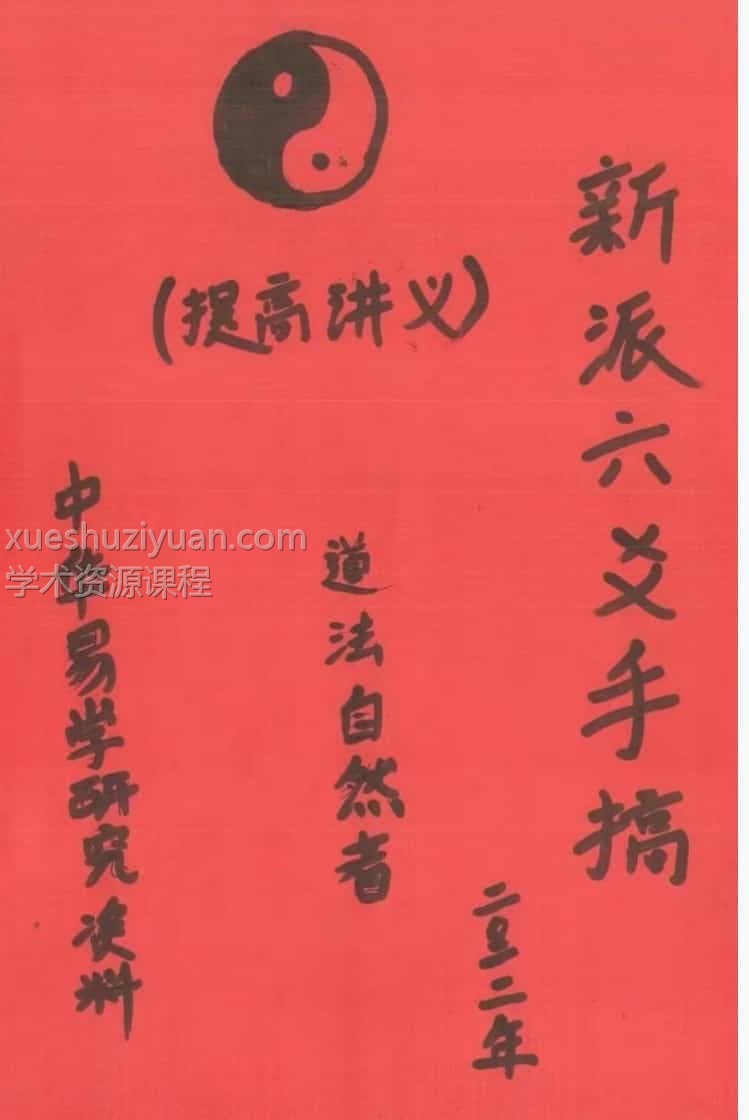 (提高讲义)
新派六爻手搞
二〇一二年
道法自然者
中华易学研究资料
xueshuziyuan.com
学术资源课程